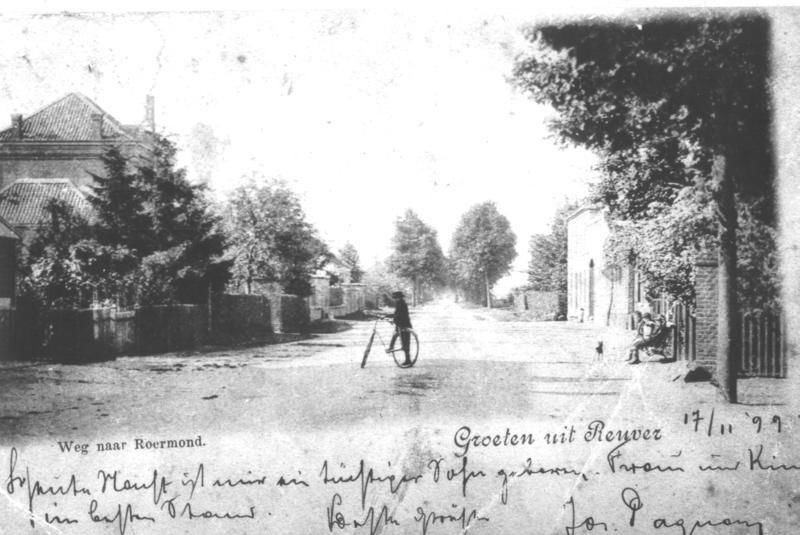 Weg naar Roermond.
Groeten uit Reuver 17/11 '99
heute Nacht ist mir ein tüchtiger Sohn geboren. Frau und Kin
im besten Stand. Beste Grüße Jos. Pagnon